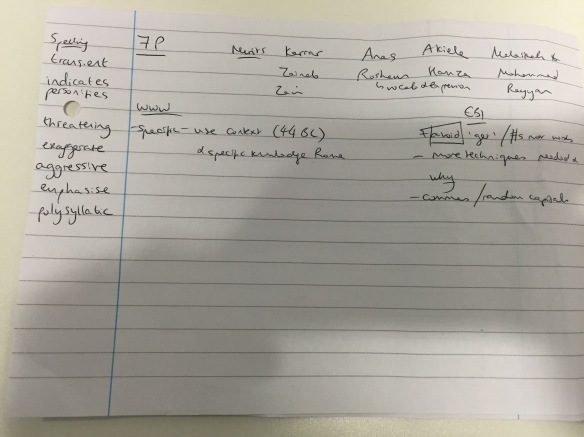 Spelling
transient
indicates
personifies
threatening
exaggerate
aggressive
emphasise
polysyllabic
7P
Merits Karrar Anas Akiela
Zainab Roshaan Hamza Mohammed
Zain Rayyan
WWW
- Specific - use context (44 BC)
& specific knowledge Rome
EBI
avoid 'get' / #s not
- more techniques needed &
why
- commas / random capitals